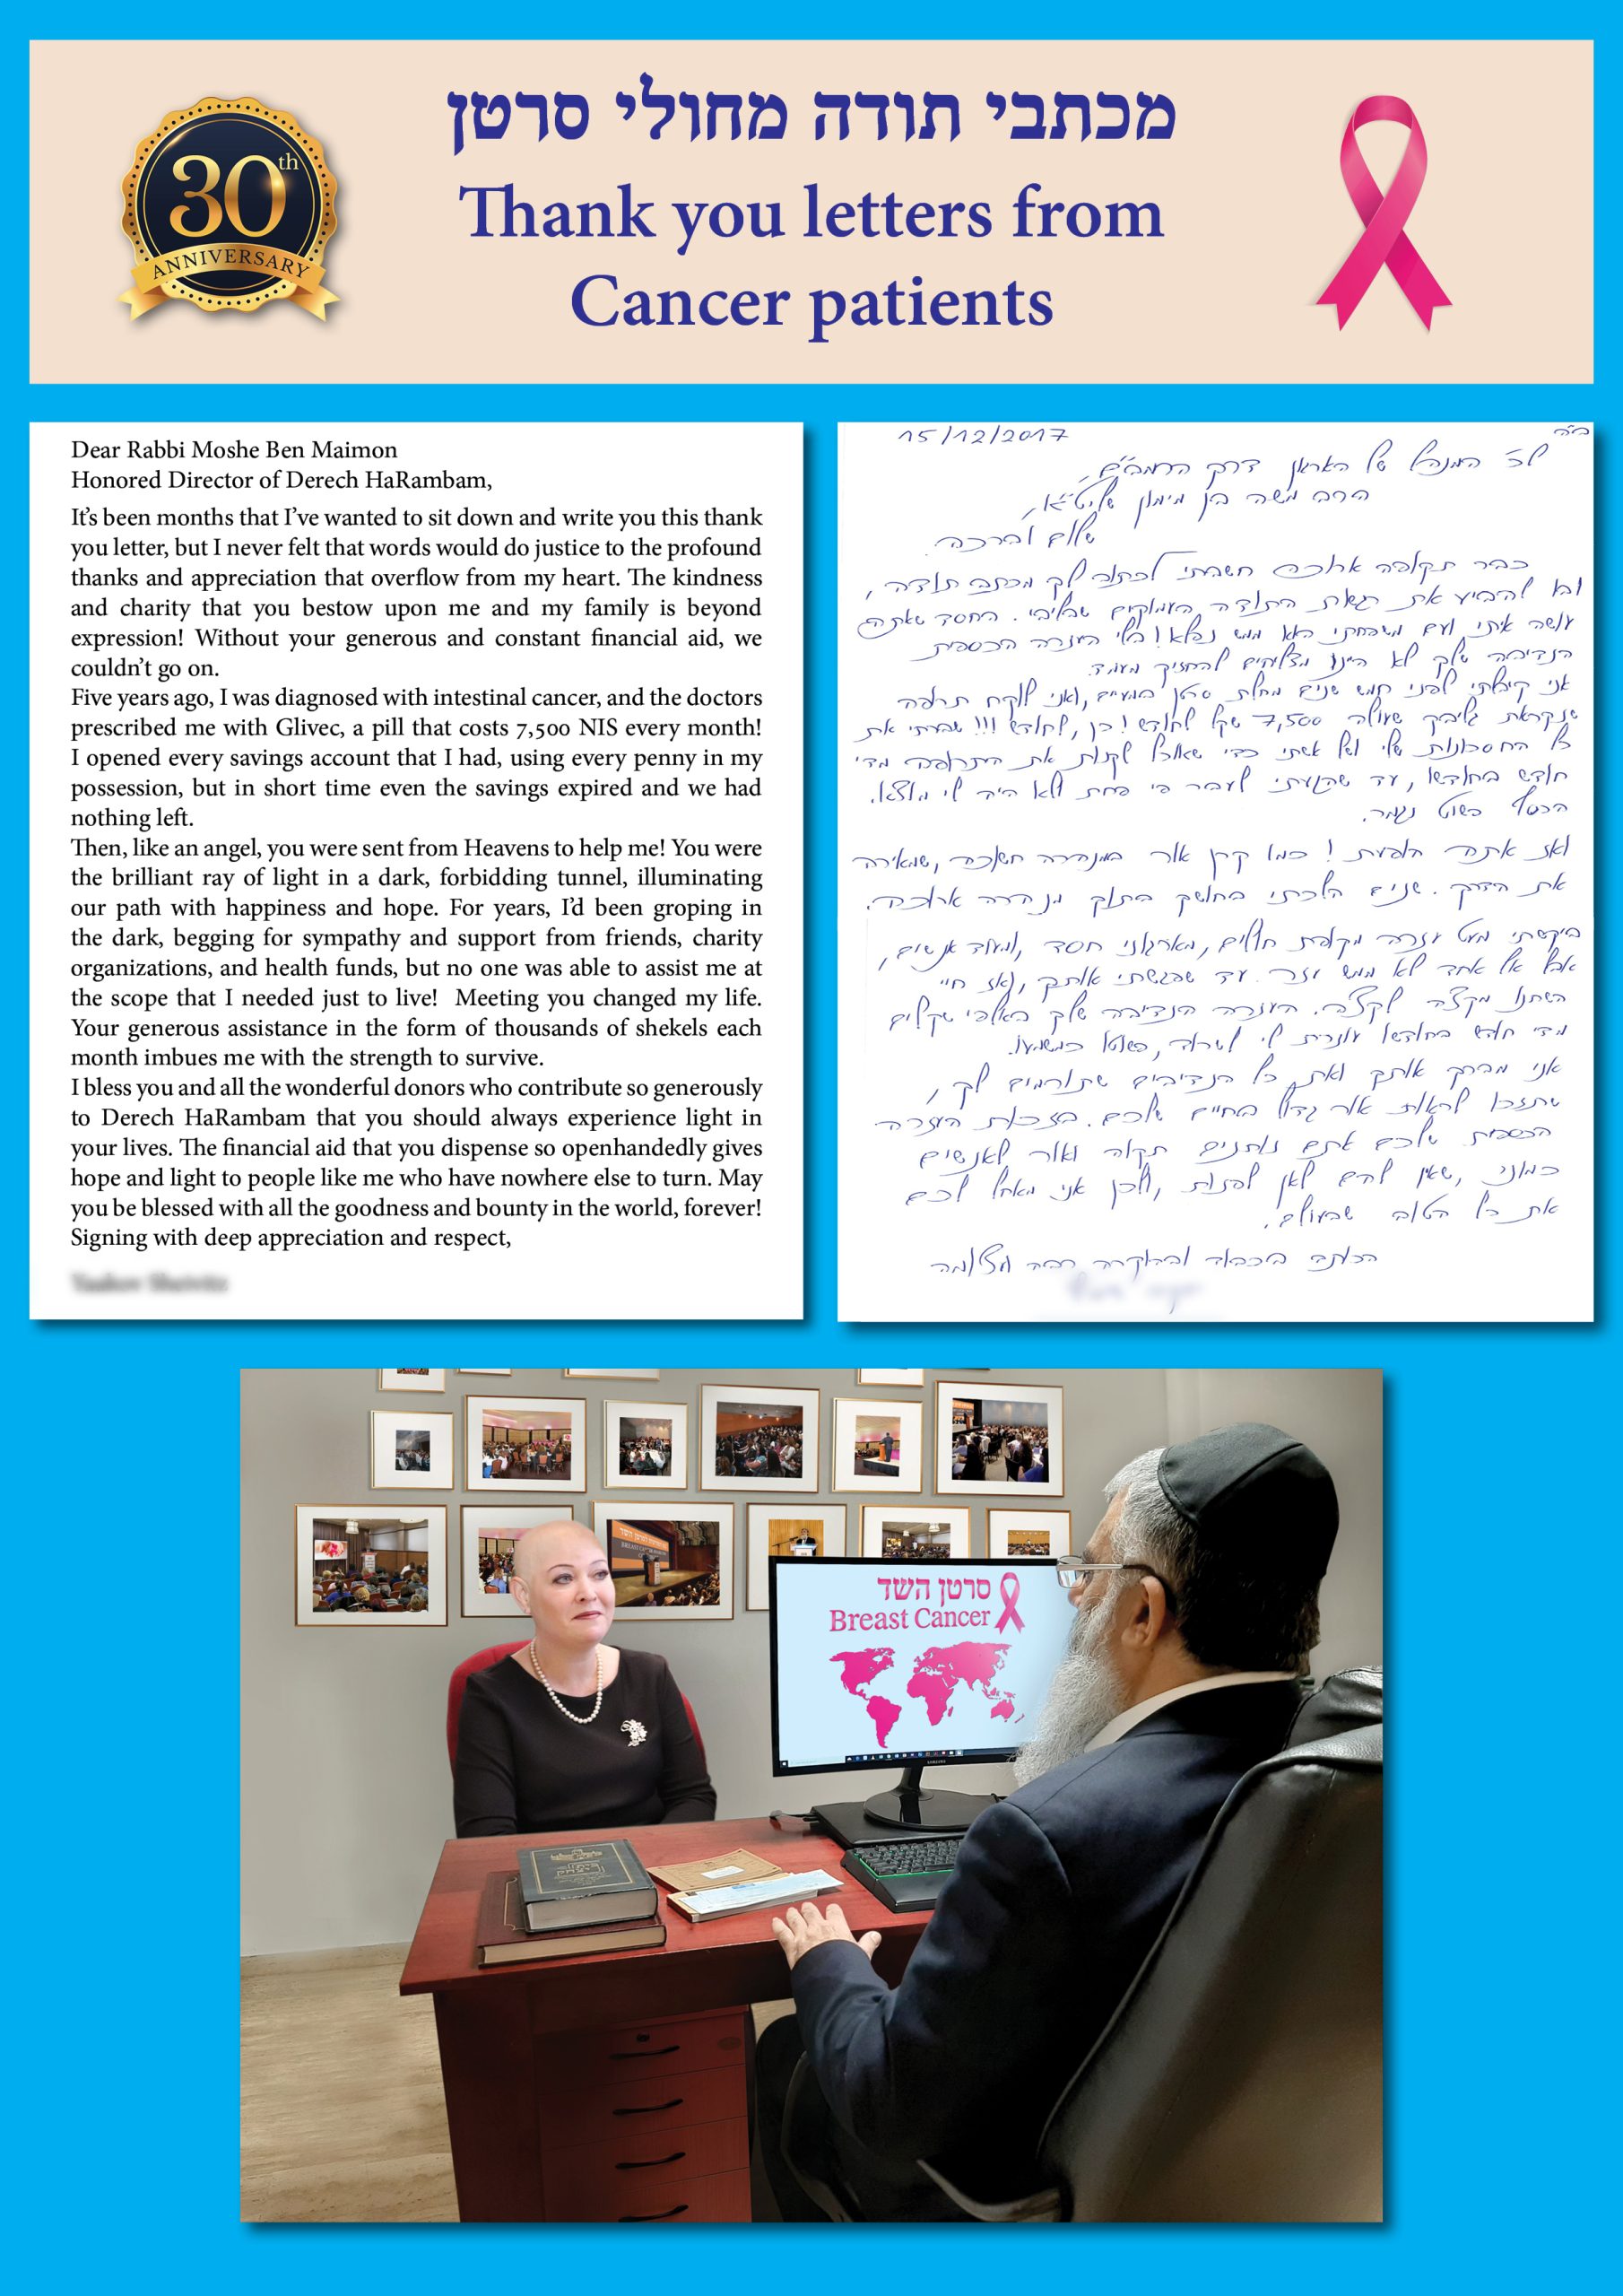 מכתבי תודה מחולי סרטן
Thank you letters from
Cancer patients
30th
ANNIVERSARY
Dear Rabbi Moshe Ben Maimon
Honored Director of Derech HaRambam,
It's been months that I've wanted to sit down and write you this thank
you letter, but I never felt that words would do justice to the profound
thanks and appreciation that overflow from my heart. The kindness
and charity that you bestow upon me and my family is beyond
expression! Without your generous and constant financial aid, we
couldn't go on.
Five years ago, I was diagnosed with intestinal cancer, and the doctors
prescribed me with Glivec, a pill that costs 7,500 NIS every month!
I opened every savings account that I had, using every penny in my
possession, but in short time even the savings expired and we had
nothing left.
Then, like an angel, you were sent from Heavens to help me! You were
the brilliant ray of light in a dark, forbidding tunnel, illuminating
our path with happiness and hope. For years, I'd been groping in
the dark, begging for sympathy and support from friends, charity
organizations, and health funds, but no one was able to assist me at
the scope that I needed just to live! Meeting you changed my life.
Your generous assistance in the form of thousands of shekels each
month imbues me with the strength to survive.
I bless you and all the wonderful donors who contribute so generously
to Derech HaRambam that you should always experience light in
your lives. The financial aid that you dispense so openhandedly gives
hope and light to people like me who have nowhere else to turn. May
you be blessed with all the goodness and bounty in the world, forever!
Signing with deep appreciation and respect,
ב"ה
15/12/2017
המנהל של הארגון דרך הרמב"ם,
הרב משה בן מימון שליט"א,
שלום וברכה.
כבר תקופה ארוכה חשבתי לכתוב לך מכתב תודה,
להביע את רגשות התודה העמוקים שבליבי. החסד שאתה
עושה איתי ועם משפחתי הוא ממש נפלא! בלי העזרה הכספית
הנדיבה שלך לא היינו מצליחים להחזיק מעמד.
אני קיבלתי לפני חמש שנים מחלת סרטן המעיים, ואני לוקח תרופה
שנקראת גליבק שעולה 7,500 שקל לחודש! כן, לחודש!!! שברתי את
כל החסכונות שלי ושל אשתי כדי שאוכל לקנות את התרופה מדי
חודש בחודשו, עד שהגעתי לעברי פי פחת ולא היה לי מוצא.
הכסף פשוט נגמר.
ואז אתה הופעת! כמו קרן אור במנהרה חשוכה, שמאירה
את הדרך. שנים הלכתי בחושך בתוך מנהרה ארוכה.
ביקשתי מעט עזרה מקופת חולים, מארגוני חסד, ועוד אנשים,
אבל אף אחד לא ממש עזר. עד שפגשתי אותך, ואז חיי
השתנו מקצה לקצה. העזרה הנדיבה שלך באלפי שקלים
מדי חודש בחודשו עוזרת לי לשרוד, פשוטו כמשמעו.
אני מברך אותך ואת כל הנדיבים שתורמים לך,
שתזכו לראות אור גדול בחיים שלכם. בזכות העזרה
הכספית שלכם אתם נותנים תקוה ואור לאנשים
כמוני, שאין להם לאן לפנות, ולכן אני מאחל לכם
את כל הטוב שבעולם.
הכותב בכבוד ובהוקרה רבה ועצומה
סרטן השד
Breast Cancer
SAMSUNG